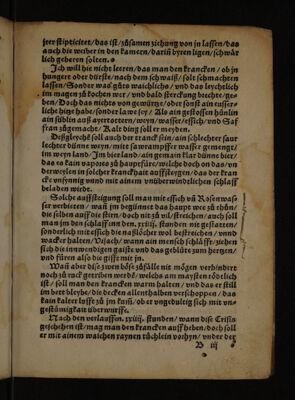 jrer stipticitet/das ist/zůsamen ziehung von jn lassen/das
auch die weiber in den kamern/darin̄ byren ligen/schwär
lich geberen solten.
Ich will hie nicht leeren/das man den krancken/ob jn
hungert oder dürste/nach dem schwaiß/solt schmachten
lassen/Sonder was gůts waichlichs/vnd das leychtlich
im magen zů kochen wer/vnd bald sterckung brechte/ge-
ben/Doch das nichts von gewürtze/oder sonst ain eusser/
liche hitze habe/sonder lawe sey/Als ain gestossen hünlin
ain süblin auß ayertottern/weyn/wasser/essich/vnd Saf
fran zůgemacht/Kalt ding soll er meyden.
Deßgleych soll auch der tranck sein/ain schlechter saur
lechter dünne weyn/mit sawrampffer wasser gemenge/
im weyn land/Im bierland/ain gemain klar dünne bier/
das es kain vapores zů haupt füre/welche doch on das/vn
derweylen in solcher kranckhait auffsteygen/das der kran
cke vnsynnig vnnd mit ainem vnüberwindtlichen schlaff
beladen wirdt.
Solche auffsteigung soll man mit essich vn̄ Rosenwas
ser verbieten/wan̄ jm beginnet das haupt wee zů thůn/
die selben auff die stirn/doch nit zů vil/streichen/auch soll
man jn den schlaff jnn den. xxiiij. stunden nit gestatten/
sonderlich mit essich die naßlöcher wol bestreichen/vnnd
wacker halten/Vrsach/wann ain mensch schläfft/ziehen
sich die innwendigen gaiste vnd das geblüte zum hertzen/
vnd füren also die gifft mit jn.
Wan̄ aber dise zwen böse zůfälle nit mögen verhindert
noch zů ruck getriben werdē/welchs am maysten tödtlich
ist/soll man den krancken warm halten/vnd das er still
im bett bleybe/die decken allenthalben verschoppen/das
kain kalter lufft zů jm kum̄/ober vngedultig sich mit vn-
gestümigkait überwurffe.
Nach den verlauffen. xxiiij. stunden/wann dise Crisis
geschehen ist/mag man den krancken auff heben/doch soll
er mit ainem waichen raynen tüchlein vorhyn/vnder der
B iij